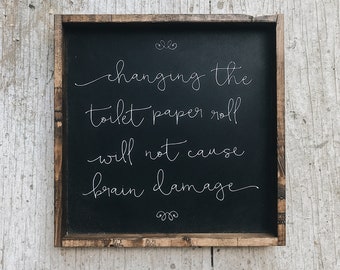 changing the
toilet paper roll
will not cause
brain damage